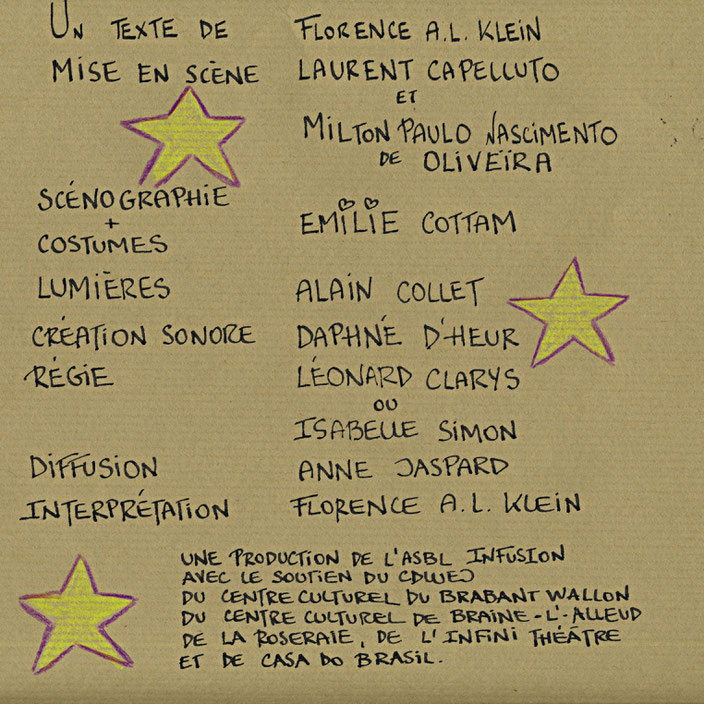 UN TEXTE DE FLORENCE A.L. KLEIN
MISE EN SCÈNE LAURENT CAPELLUTO
ET
MILTON PAULO NASCIMENTO
DE OLIVEÏRA
SCÉNOGRAPHIE
+
COSTUMES
EMILIE COTTAM
LUMIÈRES ALAIN COLLET
CRÉATION SONORE DAPHNÉ D'HEUR
RÉGIE LÉONARD CLARYS
OU
ISABELLE SIMON
DIFFUSION ANNE JASPARD
INTERPRÉTATION FLORENCE A.L. KLEIN
UNE PRODUCTION DE L'ASBL INFUSION
AVEC LE SOUTIEN DU CDWEJ
DU CENTRE CULTUREL DU BRABANT WALLON
DU CENTRE CULTUREL DE BRAINE-L'-ALLEUD
DE LA ROSERAIE, DE L'INFINI THÉÂTRE
ET DE CASA DO BRASIL.